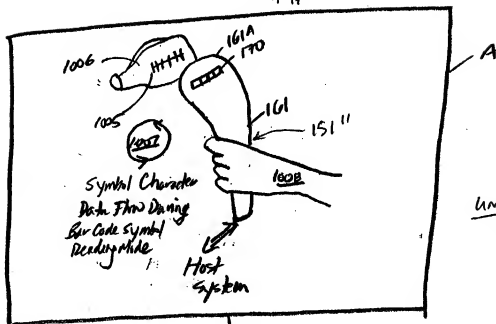 1006
161A
170
A
1005
161
151"
1007
1008
Symbol Character
Data Flow During
Bar Code Symbol
Reading Mode
Host
System